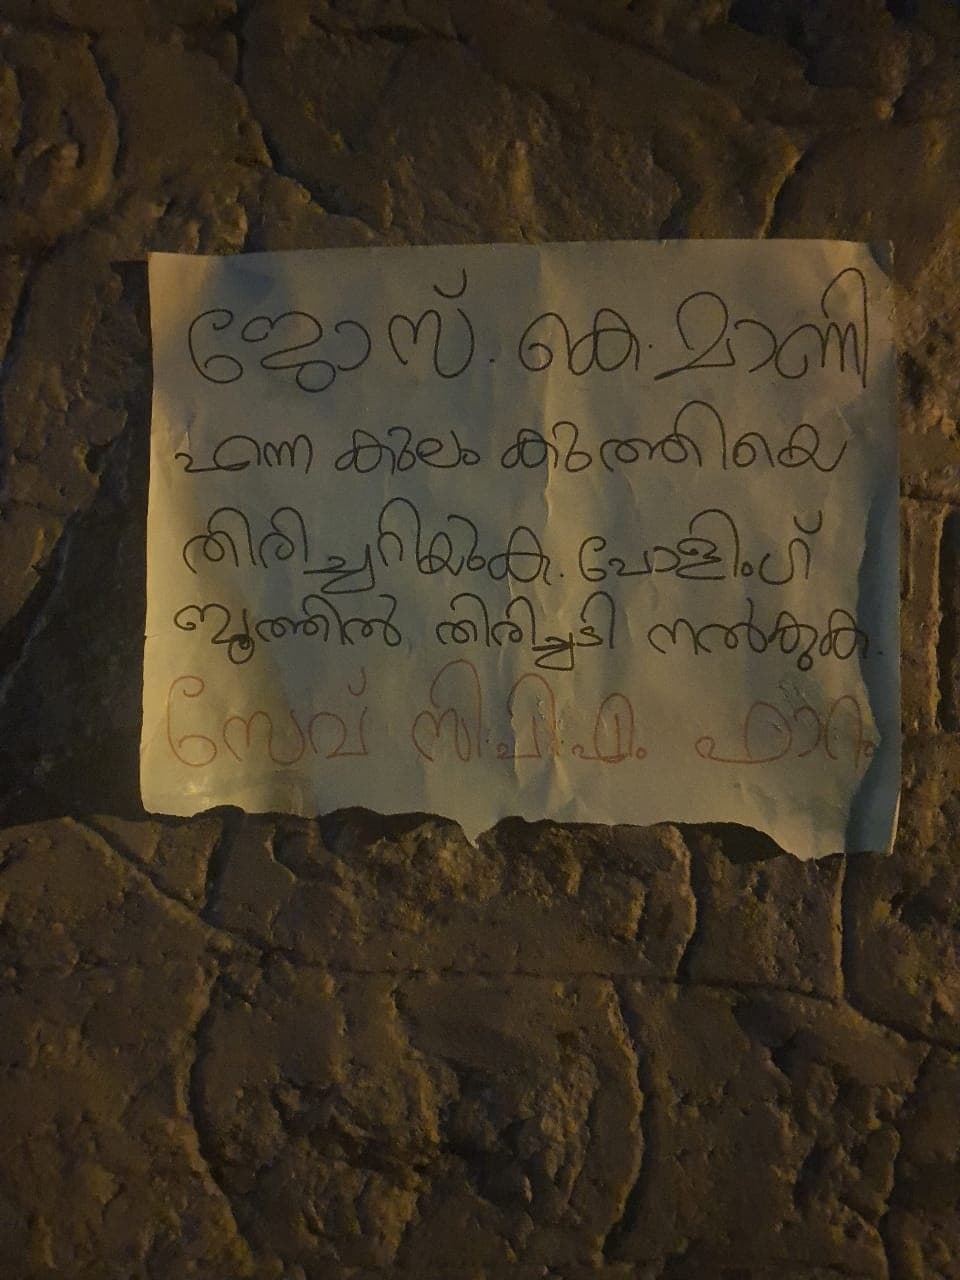 ജോസ്. കെ. മാണി
എന്ന കുലം കുത്തിയെ
തിരിച്ചറിയുക. പോളിംഗ്
ബൂത്തിൽ തിരിച്ചടി നൽകുക.
സേവ് സി.പി.എം ഫോറം